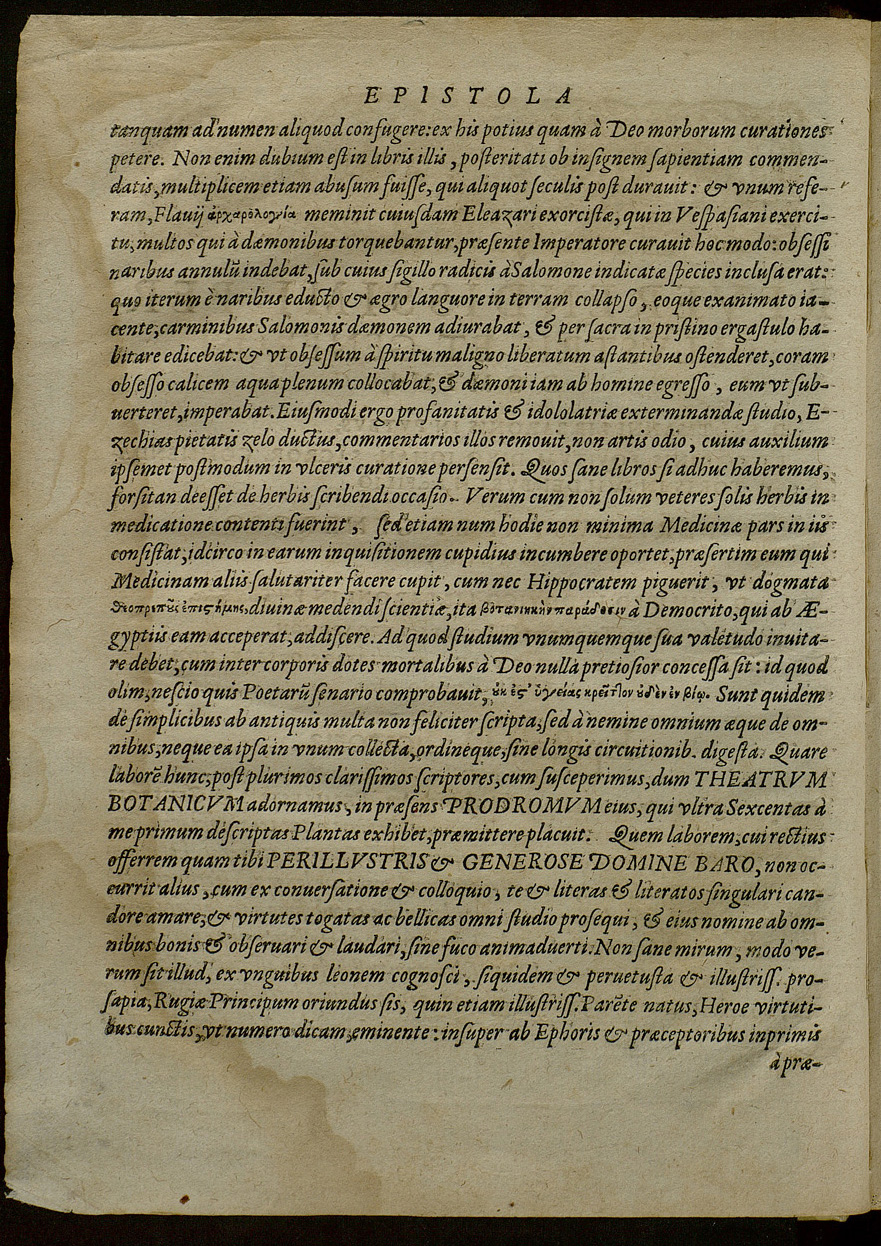 EPISTOLA
tanquam ad numen aliquod confugere: ex his potius quam à Deo morborum curationes
petere. Non enim dubium est in libris illis, posteritati ob insignem sapientiam commen-
datis, multiplicem etiam abusum fuisse, qui aliquot seculis post durauit: & vnum refe-
ram, Flauij ἀρχαιολογία meminit cuiusdam Eleazari exorcistæ, qui in Vespasiani exerci-
tu, multos qui à dæmonibus torquebantur, præsente Imperatore curauit hoc modo: obsessi
naribus annulũ indebat, sub cuius sigillo radicis à Salomone indicatæ species inclusa erat:
quo iterum è naribus educto & ægro languore in terram collapso, eoque exanimato ia-
cente, carminibus Salomonis dæmonem adiurabat, & per sacra in pristino ergastulo ha-
bitare edicebat: & vt obsessum à spiritu maligno liberatum astantibus ostenderet, coram
obsesso calicem aqua plenum collocabat, & dæmoni iam ab homine egresso, eum vt sub-
uerteret, imperabat. Eiusmodi ergo profanitatis & idololatriæ exterminandæ studio, E-
zechias pietatis zelo ductus, commentarios illos remouit, non artis odio, cuius auxilium
ipsemet postmodum in vlceris curatione persensit. Quos sane libros si adhuc haberemus,
forsitan deesset de herbis scribendi occasio. Verum cum non solum veteres solis herbis in
medicatione contenti fuerint, sed etiam num hodie non minima Medicinæ pars in iis
consistat, idcirco in earum inquisitionem cupidius incumbere oportet, præsertim eum qui
Medicinam aliis salutariter facere cupit, cum nec Hippocratem piguerit, vt dogmata
θεοπρεποῦς ἐπιςήμης, diuinæ medendi scientiæ, ita βοτανικὴν παράδοσιν à Democrito, qui ab Æ-
gyptiis eam acceperat, addiscere. Ad quod studium vnumquemque sua valetudo inuita-
re debet, cum inter corporis dotes mortalibus à Deo nulla pretiosior concessa sit: id quod
olim, nescio quis Poetarũ senario comprobauit, ȣ̓κ ἐς᾽ ὑγείας κρεῖτλον ȣ̓δὲν ἐν βίῳ. Sunt quidem
de simplicibus ab antiquis multa non feliciter scripta, sed à nemine omnium æque de om-
nibus, neque ea ipsa in vnum collecta, ordineque, sine longis circuitionib. digesta. Quare
laborẽ hunc, post plurimos clarissimos scriptores, cum susceperimus, dum THEATRVM
BOTANICVM adornamus, in præsens PRODROMVM eius, qui vltra Sexcentas à
me primum descriptas Plantas exhibet, præmittere placuit. Quem laborem, cui rectius
offerrem quam tibi PERILLVSTRIS & GENEROSE DOMINE BARO, non oc-
currit alius, cum ex conuersatione & colloquio, te & literas & literatos singulari can-
dore amare, & virtutes togatas ac bellicas omni studio prosequi, & eius nomine ab om-
nibus bonis & obseruari & laudari, sine fuco animaduerti. Non sane mirum, modo ve-
rum sit illud, ex vnguibus leonem cognosci, siquidem & peruetusta & illustriss. pro-
sapia, Rugiæ Principum oriundus sis, quin etiam illustriss. Parẽte natus, Heroe virtuti-
bus cunctis, vt numero dicam, eminente: insuper ab Ephoris & præceptoribus inprimis
à præ-